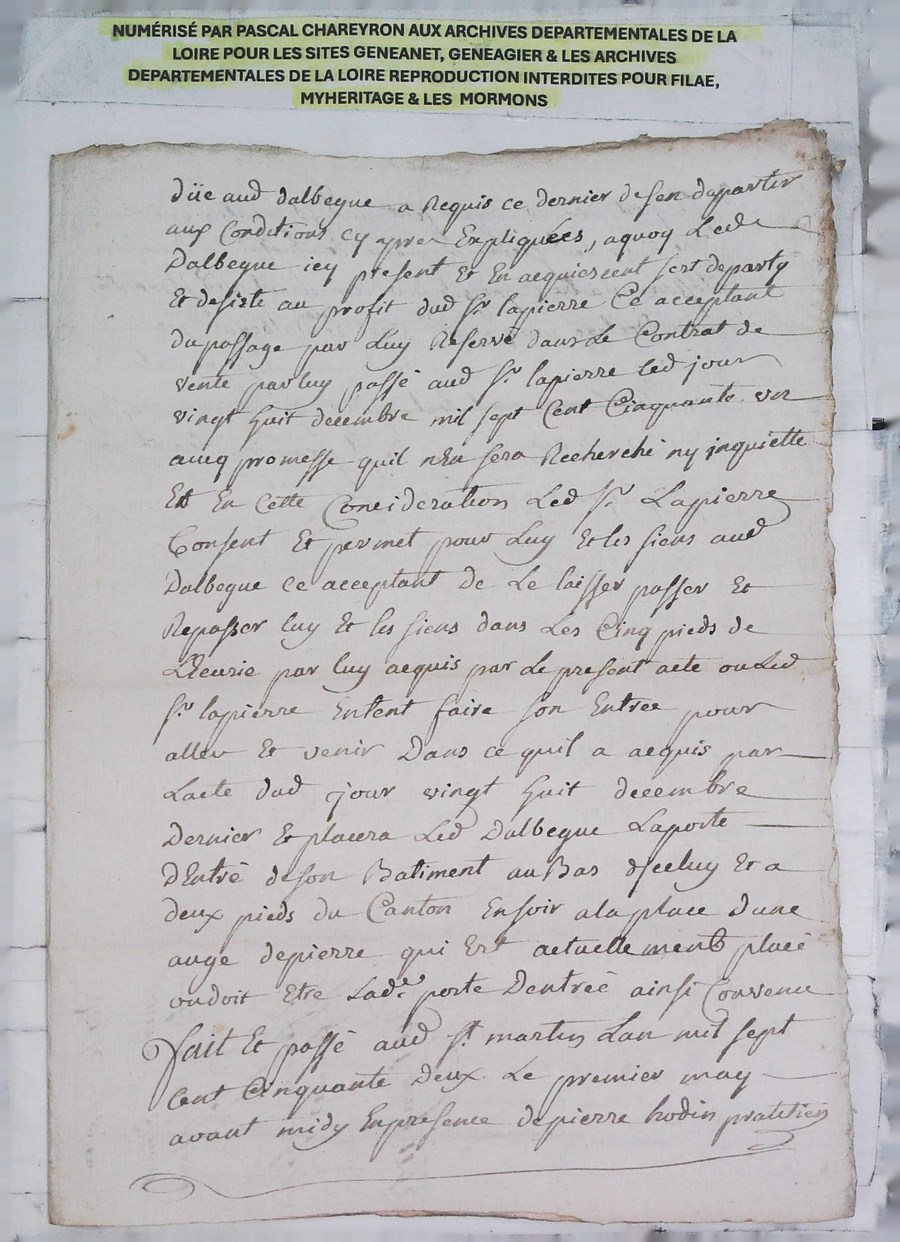 NUMÉRISÉ PAR PASCAL CHAREYRON AUX ARCHIVES DEPARTEMENTALES DE LA
LOIRE POUR LES SITES GENEANET, GENEAGIER & LES ARCHIVES
DEPARTEMENTALES DE LA LOIRE REPRODUCTION INTERDITES POUR FILAE,
MYHERITAGE & LES MORMONS
düe aud dalbegue a Requis ce dernier de sen departir
aux Conditions cy apres Expliquées, aquoy Led
Dalbegue icy present Et En acquiescent sest departy
Et desisté au profit dud Sr. lapierre Ce acceptant
du passage par Luy Reservé dans Le Contrat de
vente par luy passé aud Sr. lapierre led jour
vingt huit decembre mil sept Cent Cinquante un
avecq promesse quil nEn sera Recherché ny jnquietté
Et En Cette Consideration Led Sr. Lapierre
Consent Et permet pour Luy Et les siens aud
Dalbegue ce acceptant de Le laisser passer Et
Repasser luy Et les siens dans Les Cinq pieds de
par luy acquis par Le present acte ou Led
Sr. lapierre Entent faire son Entrée pour
aller Et venir Dans ce quil a acquis par
Lacte dud jour vingt huit decembre
Dernier Et placera Led Dalbegue Laporte
dEntré de son Batiment au Bas djceluy Et a
deux pieds du Canton En soir a la place dune
auge de pierre qui Est actuellement placé
ou doit Etre Lade. porte Dentréé ainsi Convenu
fait Et passé aud St. martin Lan mil sept
Cent Cinquante Deux Le premier may
avant midy En presence de pierre hodin pratitien